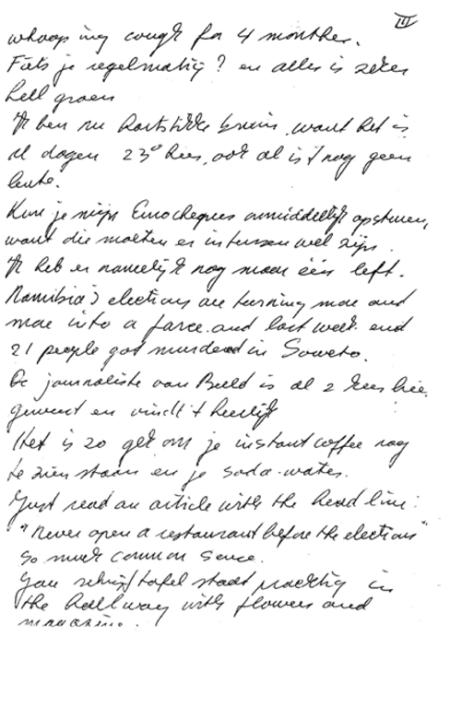 III
whooping cough for 4 months.
Fiets je regelmatig? en alles is zeker
hell groen
Ik ben nu hartstikke bruin, want het is
al dagen 23° hier, ook al is 't nog geen
lente.
Kun je mijn Eurocheques onmiddellijk opsturen,
want die moeten er intussen wel zijn.
Ik heb er namelijk nog maar één left.
Namibia's elections are turning more and
more into a farce and last week end
21 people got murdered in Soweto.
De journaliste van Beeld is al 2 keer hier
geweest en vindt 't heerlijk
Het is zo gek om je instant coffee nog
te zien staan en je soda-water.
Just read an article with the head line:
"Never open a restaurant before the elections"
So much common sense.
Jouw schrijftafel staat prachtig in
the hallway with flowers and